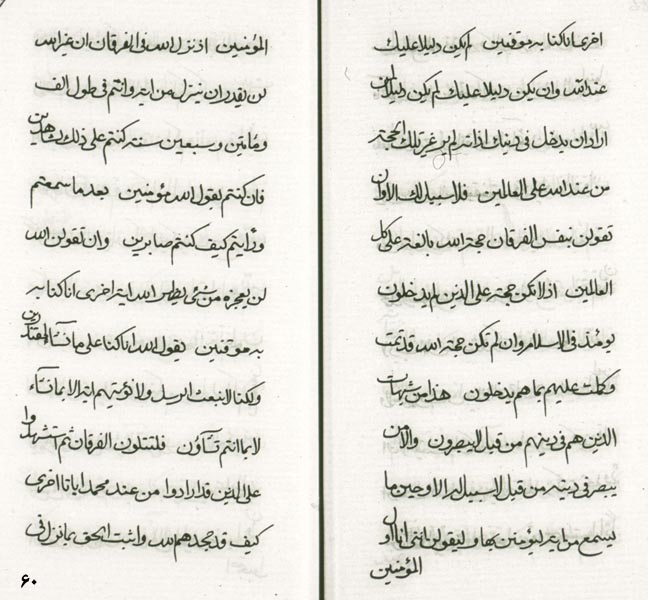 اخرى انا كنا به موقنين لم يكن دليلا عليك
عند الله وان يكن دليلا عليك لم يكن دليلا لمن
اراد ان يدخل فى دينك اذ انه لم ير غير تلك الحجة
من عند الله على العالمين فلا سبيل لك الا وان
تقولن نفس الفرقان حجة الله بالغة على كل
العالمين اذ لا تكن حجة على الذين لم يدخلون
يومئذ فى الاسلام وان لم تكن حجة الله قد تمت
وكملت عليهم بما هم يدخلون هذا من
الذين هم فى دينهم من قبل لا يبصرون والا من
يبصر فى دينه من قبل لا سبيل له الا وحين ما
يسمع من اية ليؤمنن بها وليقولن اننى انا اول
المؤمنين
المؤمنين اذ نزل الله فى الفرقان ان غير الله
لن يقدر ان ينزل من اية وانتم فى طول الف
ومأتين وسبعين سنة كنتم على ذلك لشاهدين
فان كنتم بقول الله مؤمنين بعد ما سمعتم
ورأيتم كيف كنتم صابرين وان تقولن الله
لن يعجزه من شئ يظهر الله اية اخرى انا كنا به
به موقنين يقول الله انا كنا على ما نشاء لمقتدرين
ولكنا لا نبعث الرسل ولا نؤتينهم اية الا بما نشاء
لا بما انتم تشآؤن فلتتلون الفرقان ثم تشهدوا
على الذين قد ارادوا من عند محمد اياتا اخرى
كيف قد جحدهم الله واثبت الحق بما نزل فى
۶۰